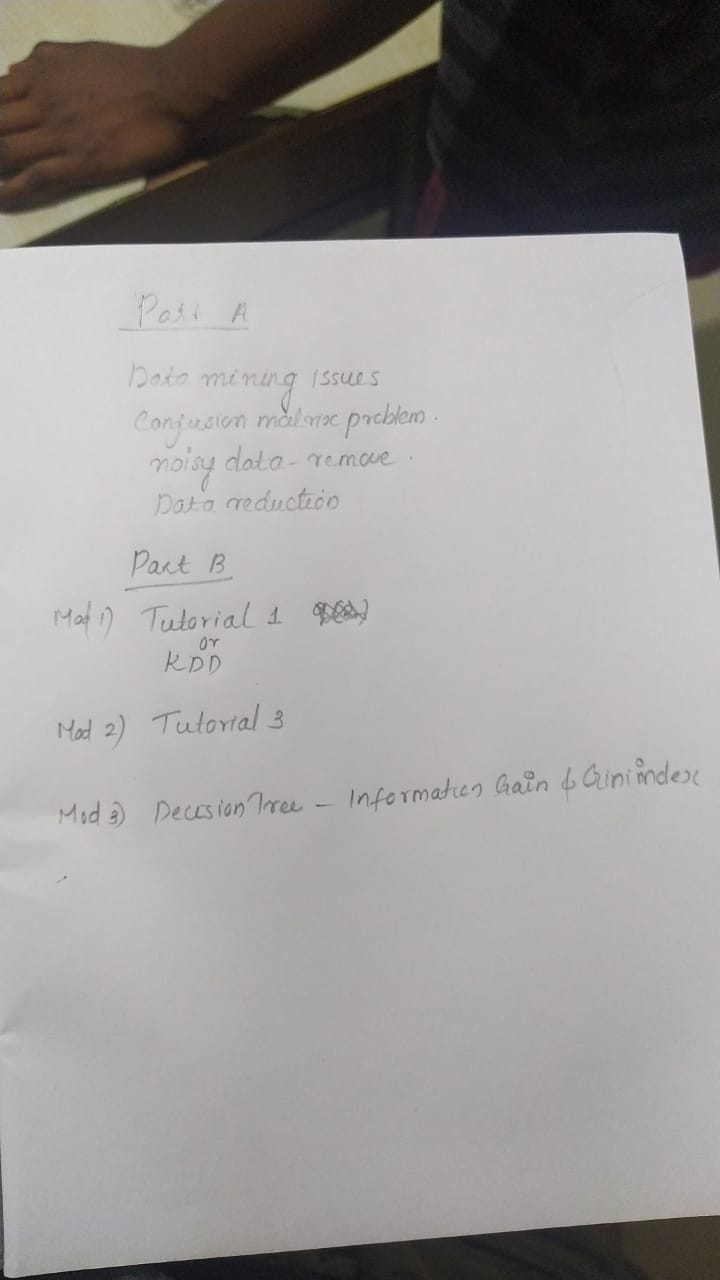 Part A
Data mining issues
Confusion matrix problem.
noisy data - remove.
Data reduction
Part B
Mod 1) Tutorial 1
or
KDD
Mod 2) Tutorial 3
Mod 3) Decision Tree - Information Gain & Gini index